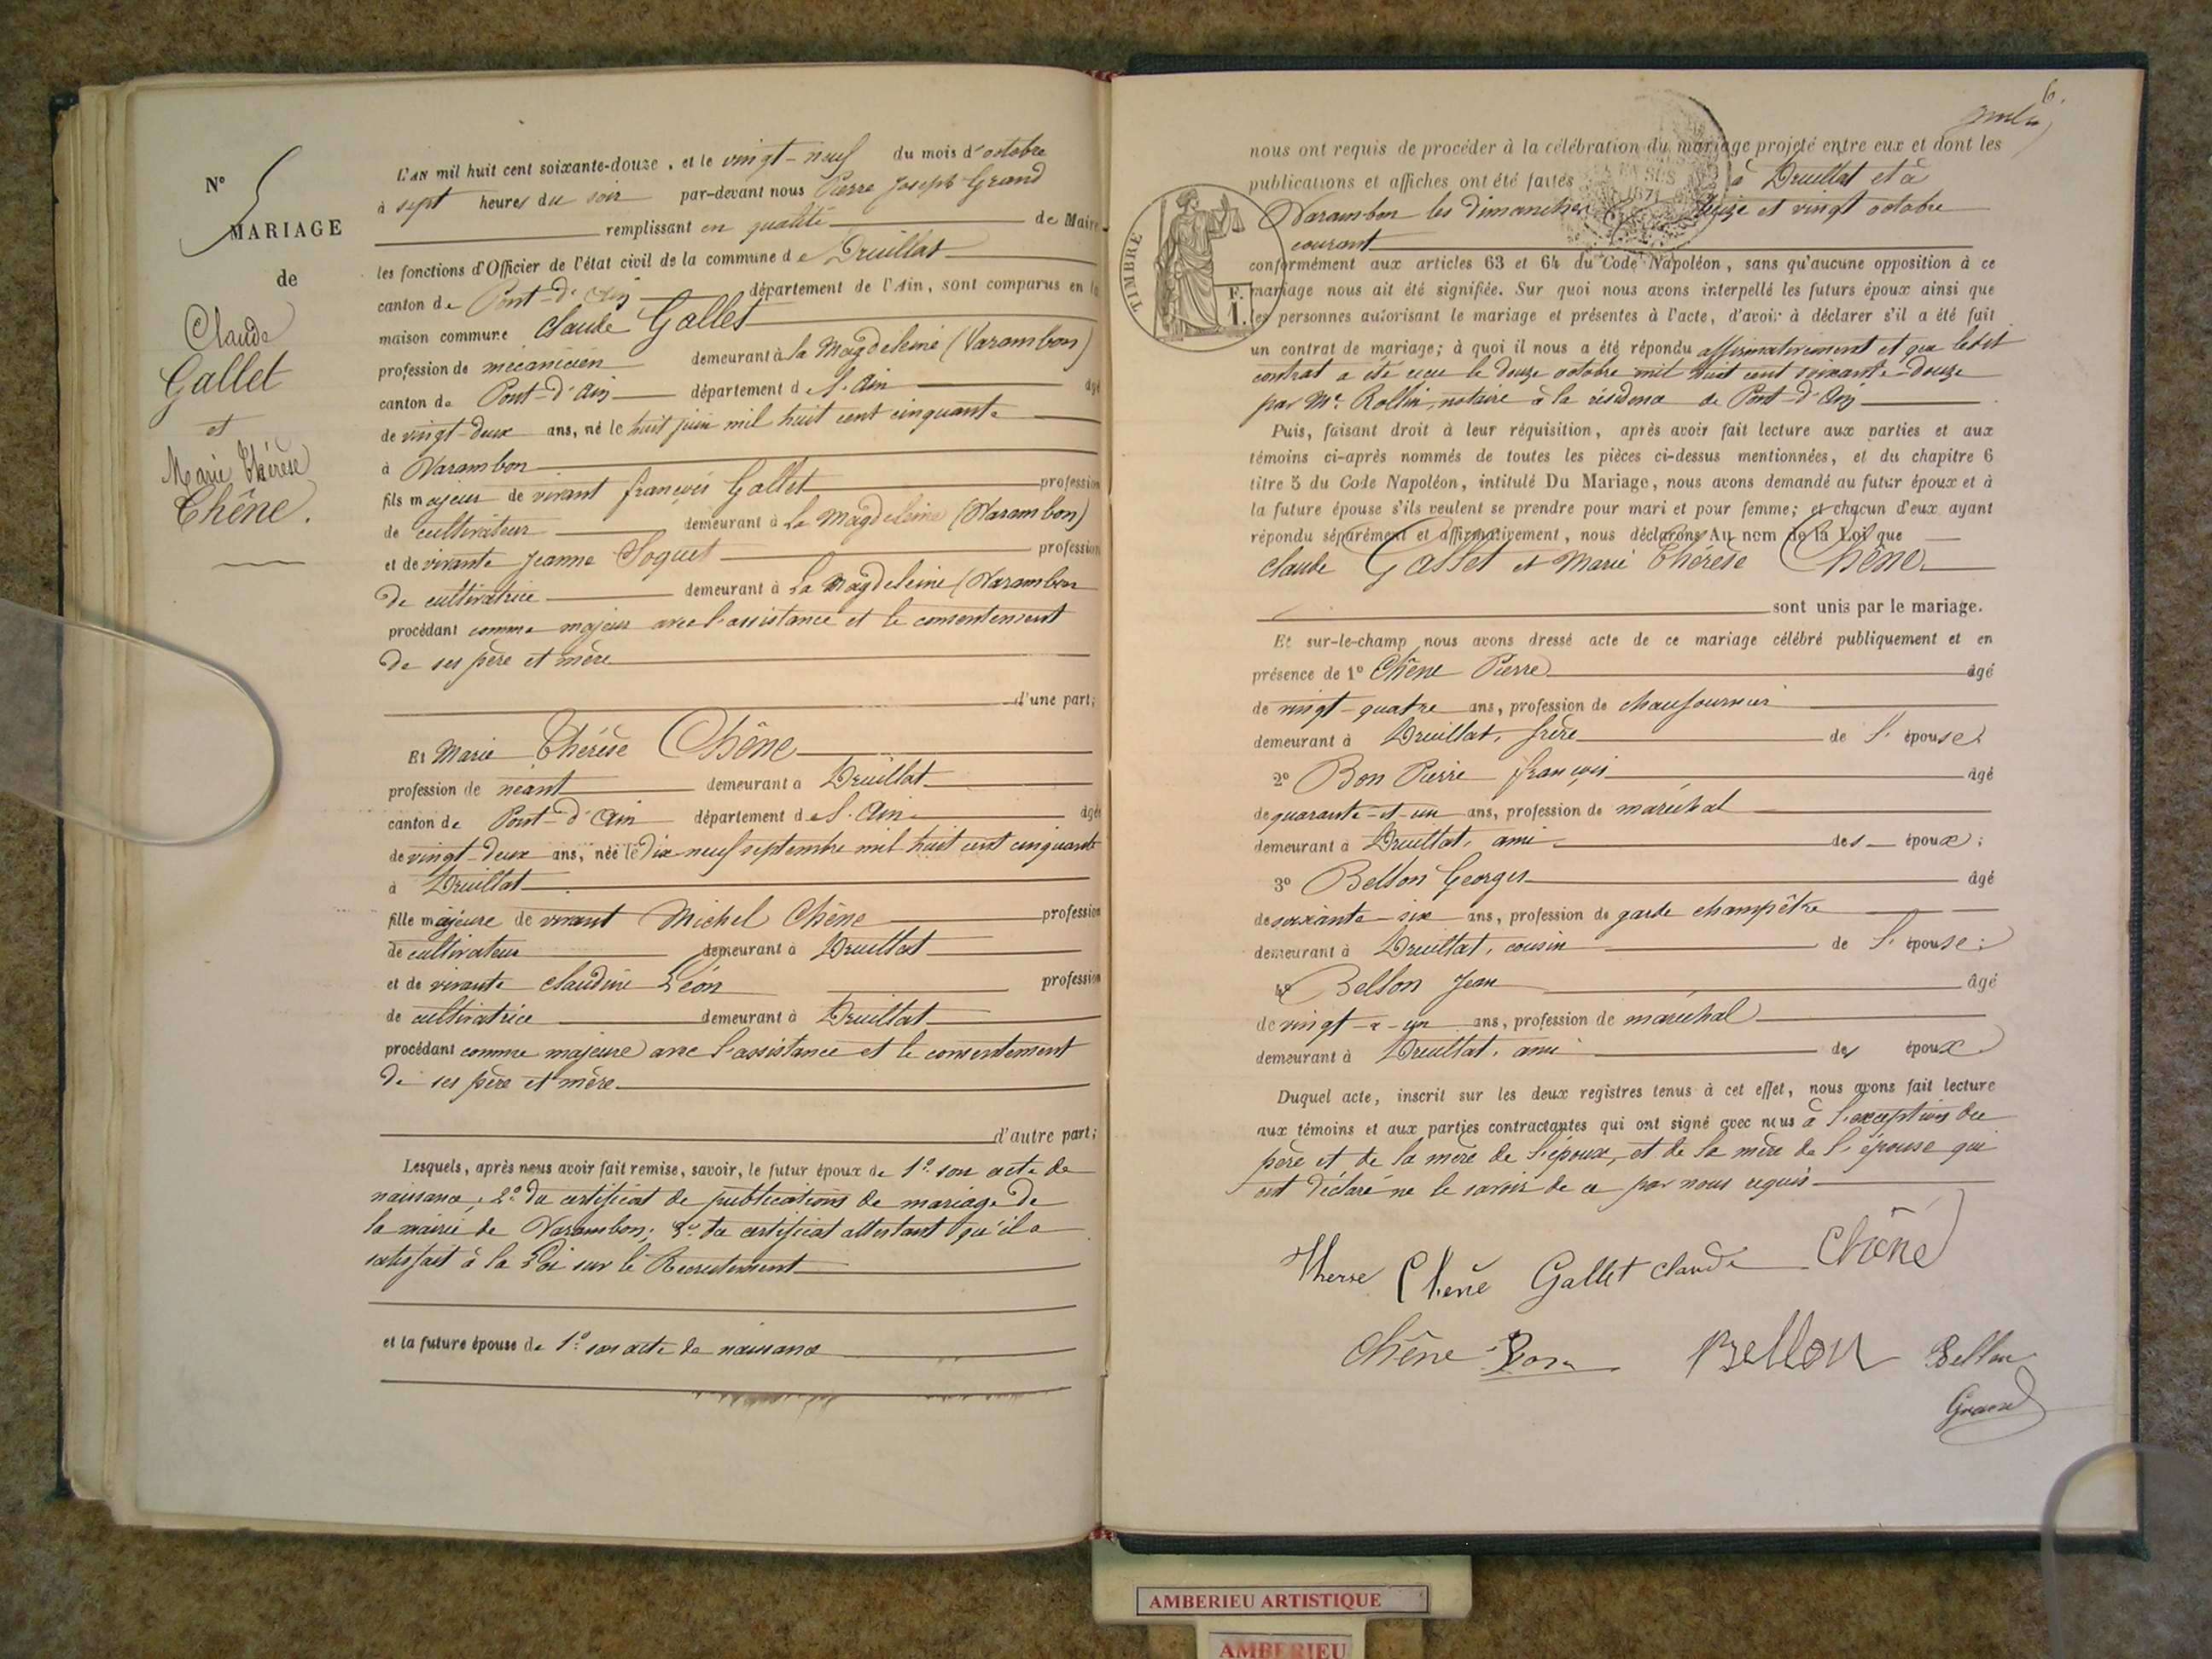 N° 5
MARIAGE
de
Claude
Gallet
et
Marie Thérèse
Chêne.
L'AN mil huit cent soixante-douze, et le vingt-neuf du mois d'octobre
à sept heures du soir par-devant nous Pierre Joseph Grand
remplissant en qualité de Maire
les fonctions d'Officier de l'état civil de la commune de Druillat
canton de Pont-d'Ain département de l'Ain, sont comparus en la
maison commune Claude Gallet
profession de mécanicien demeurant à la Magdeleine (Varambon)
canton de Pont-d'Ain département de l'Ain âgé
de vingt-deux ans, né le huit juin mil huit cent cinquante
à Varambon
fils majeur de vivant françois Gallet profession
de cultivateur demeurant à La Magdeleine (Varambon)
et de vivante Jeanne Soquet profession
de cultivatrice demeurant à La Magdeleine (Varambon
procédant comme majeur avec l'assistance et le consentement
de ses père et mère
d'une part;
Et Marie Thérèse Chêne
profession de néant demeurant à Druillat
canton de Pont-d'Ain département de l'Ain âgée
de vingt-deux ans, née le dix neuf septembre mil huit cent cinquante
à Druillat
fille majeure de vivant Michel Chêne profession
de cultivateur demeurant à Druillat
et de vivante Claudine Léon profession
de cultivatrice demeurant à Druillat
procédant comme majeure avec l'assistance et le consentement
de ses père et mère
d'autre part;
Lesquels, après nous avoir fait remise, savoir, le futur époux de 1° son acte de
naissance; 2° du certificat de publications de mariage de
la mairie de Varambon; 3° du certificat attestant qu'il a
satisfait à la Loi sur le Recrutement
et la future épouse de 1° son acte de naissance
6.
nous ont requis de procéder à la célébration du mariage projeté entre eux et dont les
publications et affiches ont été faites à Druillat et à
Varambon les dimanches treize et vingt octobre
courant
TIMBRE
1871
F.
1.
conformément aux articles 63 et 64 du Code Napoléon, sans qu'aucune opposition à ce
mariage nous ait été signifiée. Sur quoi nous avons interpellé les futurs époux ainsi que
les personnes autorisant le mariage et présentes à l'acte, d'avoir à déclarer s'il a été fait
un contrat de mariage; à quoi il nous a été répondu affirmativement et que ledit
contrat a été reçu le douze octobre mil huit cent soixante-douze
par Me. Rollin, notaire à la résidence de Pont-d'Ain
Puis, faisant droit à leur réquisition, après avoir fait lecture aux parties et aux
témoins ci-après nommés de toutes les pièces ci-dessus mentionnées, et du chapitre 6
titre 5 du Code Napoléon, intitulé Du Mariage, nous avons demandé au futur époux et à
la future épouse s'ils veulent se prendre pour mari et pour femme; et chacun d'eux ayant
répondu séparément et affirmativement, nous déclarons Au nom de la Loi que
Claude Gallet et Marie Thérèse Chêne
sont unis par le mariage.
Et sur-le-champ nous avons dressé acte de ce mariage célébré publiquement et en
présence de 1° Chêne Pierre âgé
de vingt-quatre ans, profession de chaufournier
demeurant à Druillat, frère de l'épouse;
2° Bon Pierre françois âgé
de quarante-et-un ans, profession de maréchal
demeurant à Druillat, ami des époux;
3° Bellon Georges âgé
de soixante-six ans, profession de garde champêtre
demeurant à Druillat, cousin de l'épouse;
4° Bellon Jean âgé
de vingt-&-un ans, profession de maréchal
demeurant à Druillat, ami des époux
Duquel acte, inscrit sur les deux registres tenus à cet effet, nous avons fait lecture
aux témoins et aux parties contractantes qui ont signé avec nous à l'exception du
père et de la mère de l'époux, et de la mère de l'épouse qui
ont déclaré ne le savoir de ce par nous requis
Therse Chêne Gallet Claude Chêne
Chêne Bon Bellon Bellon
Grand
AMBERIEU ARTISTIQUE
AMBERIEU